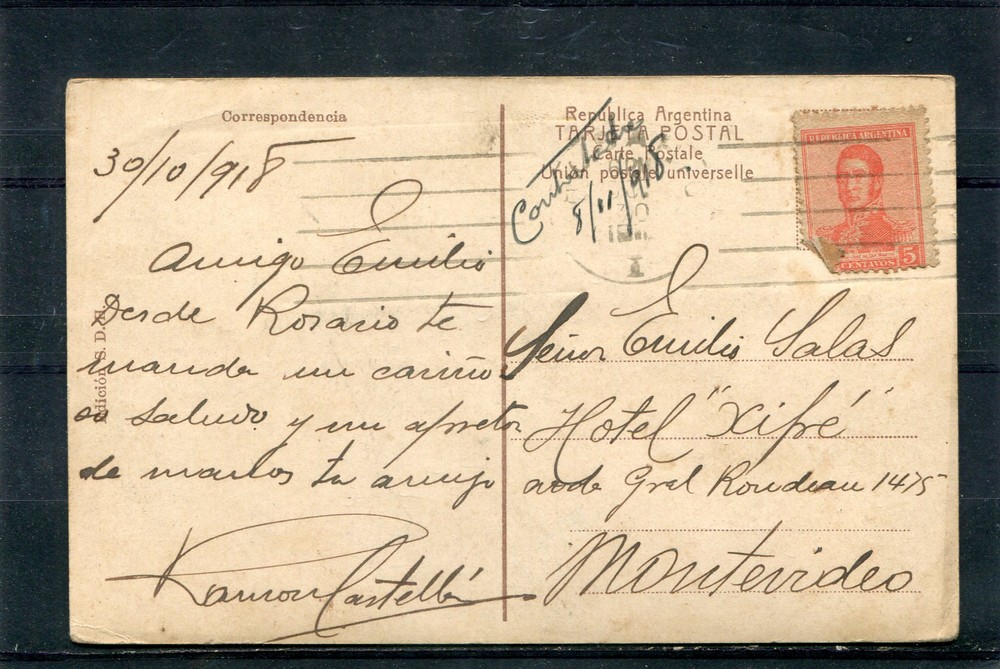 Correspondencia
30/10/918
Amigo Emilio
Desde Rosario te
manda un cariño
so saludo y un apretón
de manos tu amigo
Ramon Castellá
Edición S. D.
República Argentina
TARJETA POSTAL
Carte Postale
Unión postale universelle
Contestada
8/11/918
REPUBLICA ARGENTINA
5
CENTAVOS
Señor Emilio Salas
Hotel "Xifré"
Gral Rondeau 1475
Montevideo